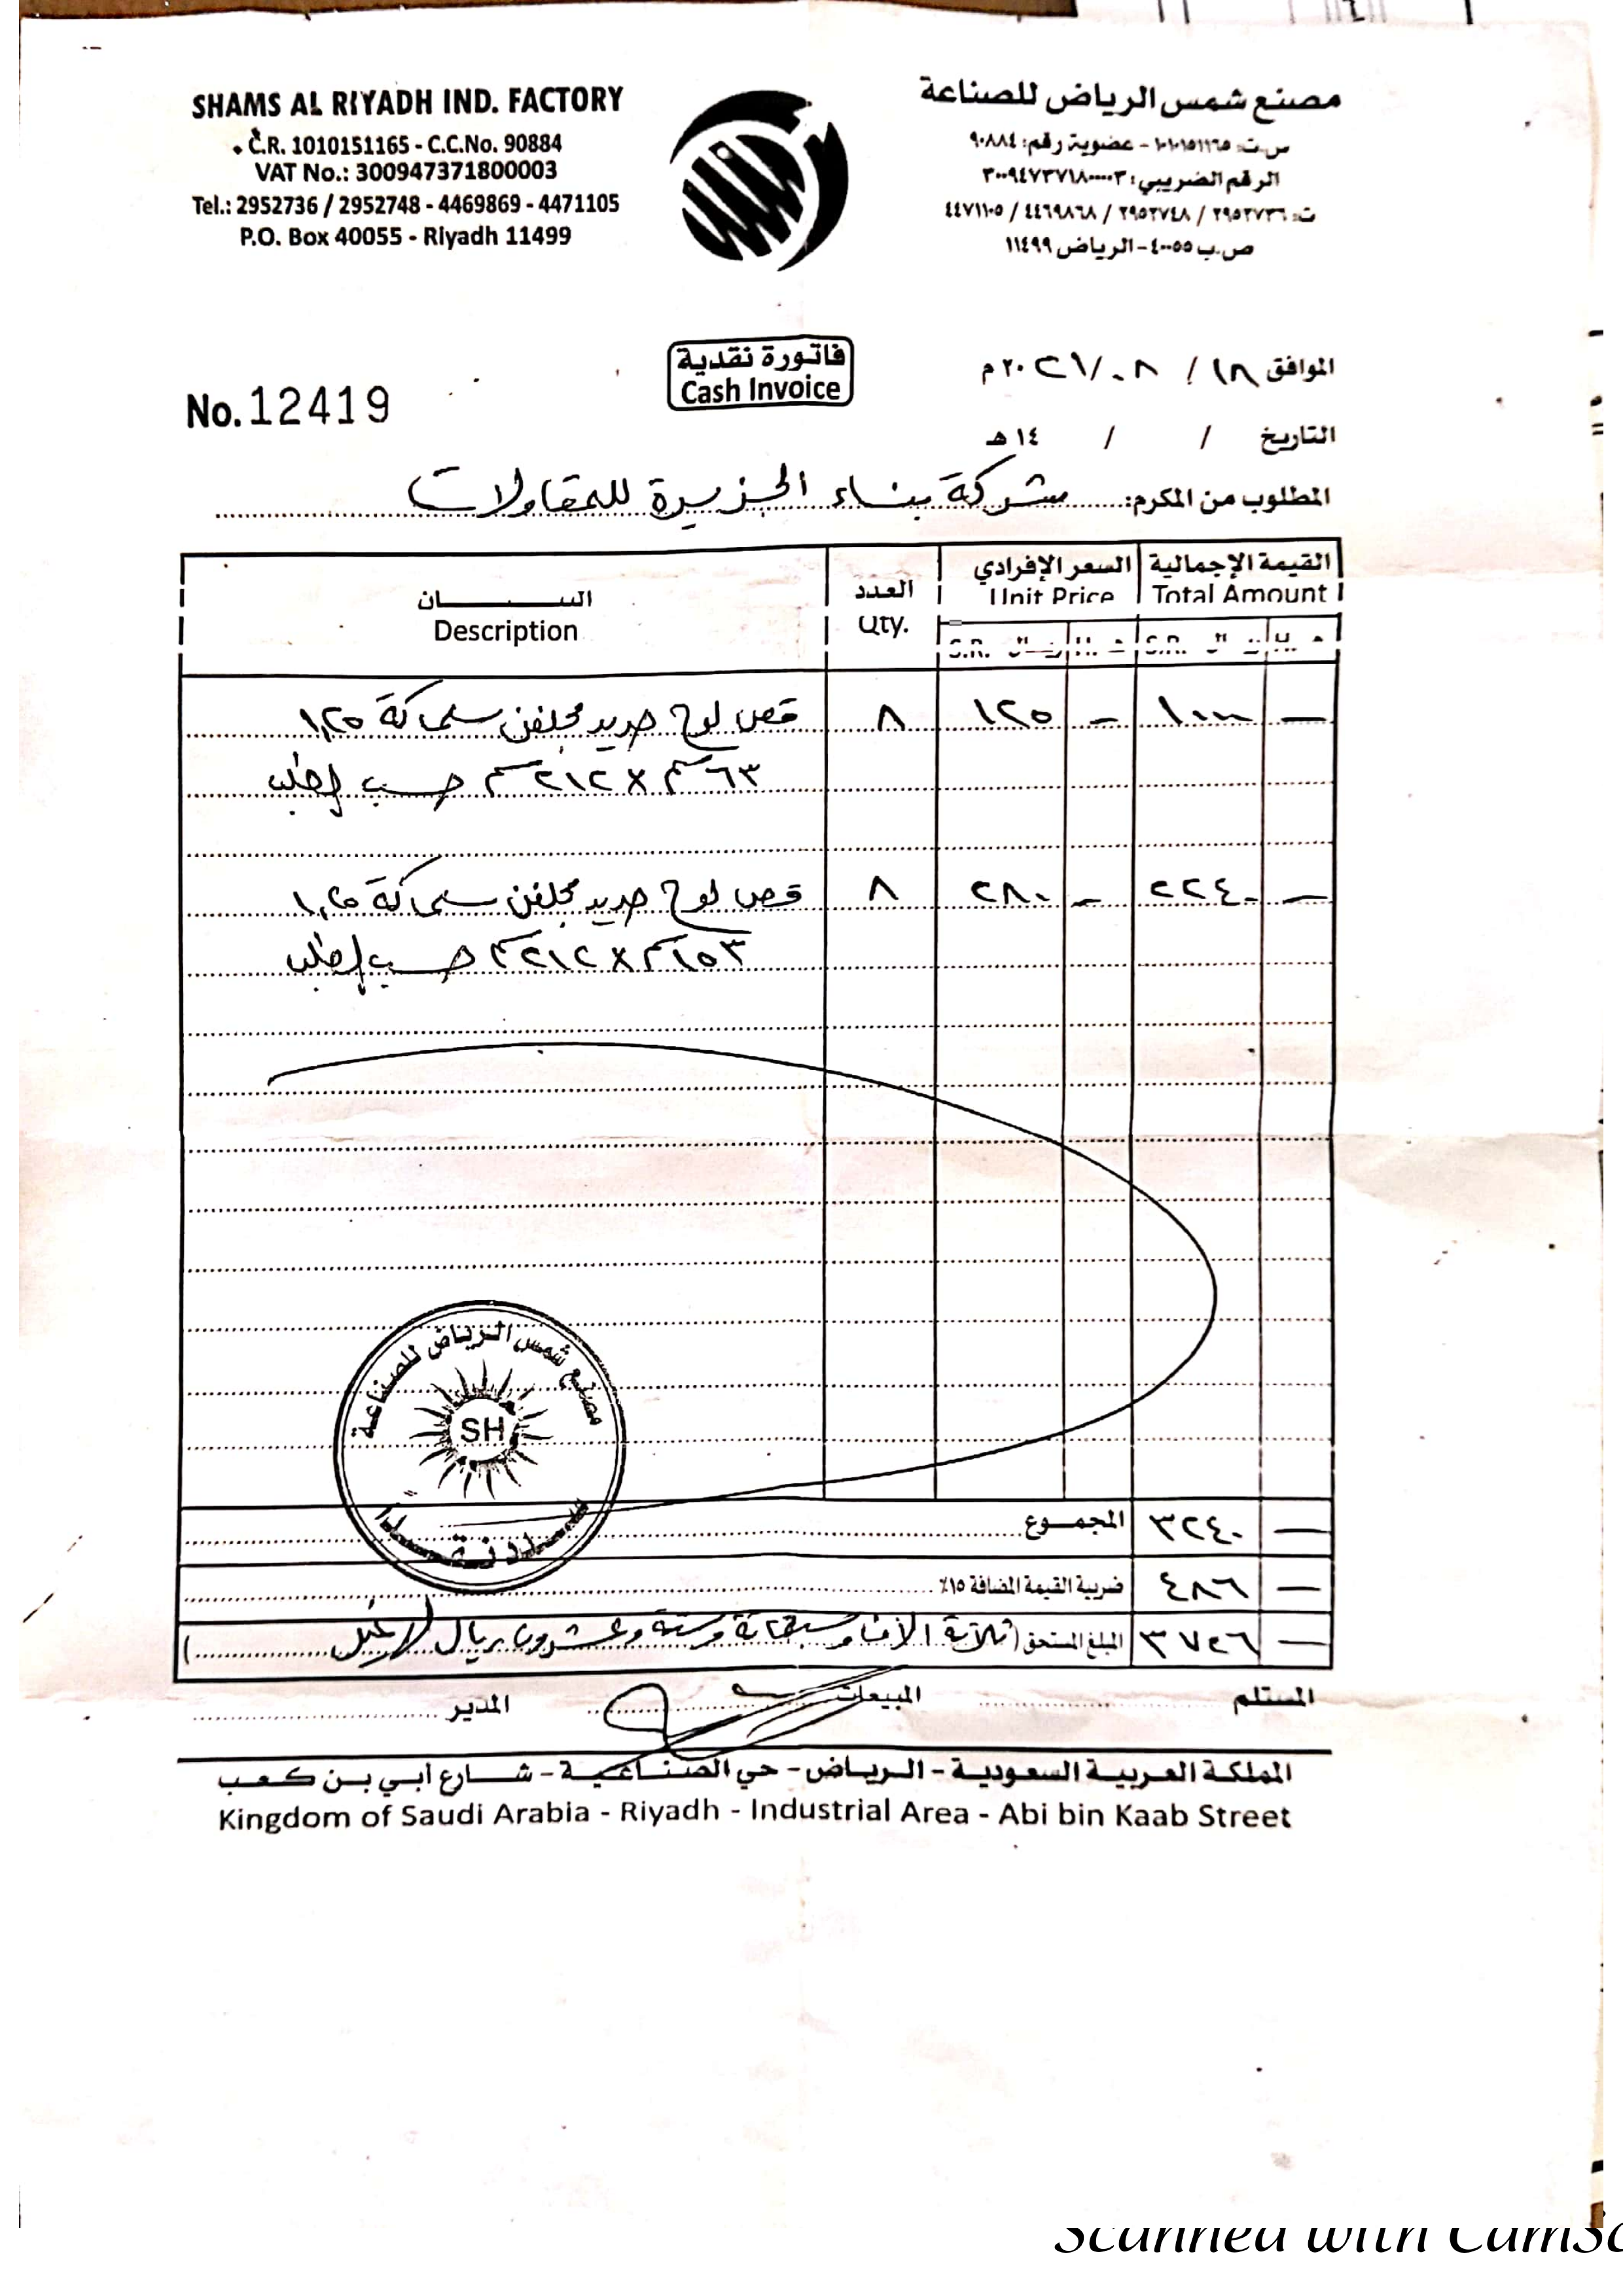 SHAMS AL RIYADH IND. FACTORY
C.R. 1010151165 - C.C.No. 90884
VAT No.: 300947371800003
Tel.: 2952736 / 2952748 - 4469869 - 4471105
P.O. Box 40055 - Riyadh 11499
مصنع شمس الرياض للصناعة
س.ت: ١٠١٠١٥١١٦٥ - عضوية رقم: ٩٠٨٨٤
الرقم الضريبي: ٣٠٠٩٤٧٣٧١٨٠٠٠٠٣
ت: ٢٩٥٢٧٣٦ / ٢٩٥٢٧٤٨ / ٤٤٦٩٨٦٨ / ٤٤٧١١٠٥
ص.ب ٤٠٠٥٥ - الرياض ١١٤٩٩
فاتورة نقدية
Cash Invoice
No. 12419
الموافق ١٨ / ٠٨ / ٢٠٢١ م
التاريخ / / ١٤ هـ
المطلوب من المكرم: شركة بناء الجزيرة للمقاولات
البيان العدد السعر الإفرادي القيمة الإجمالية
Description Qty. Unit Price Total Amount
S.R. ريال H. هـ S.R. ريال H. هـ
قص لوح حديد مجلفن سماكة ١,٢٥ ٨ ١٢٥ - ١٠٠٠ -
٦٣ سم × ٢١٢ سم حسب الطلب
قص لوح حديد مجلفن سماكة ١,٢٥ ٨ ٢٨٠ - ٢٢٤٠ -
١٥٣ سم × ٢١٢ سم حسب الطلب
مصنع شمس الرياض للصناعة
SH
سدد نقداً
المجموع ٣٢٤٠ -
ضريبة القيمة المضافة ١٥٪ ٤٨٦ -
المبلغ المستحق (ثلاثة آلاف وسبعمائة وستة وعشرون ريال لا غير) ٣٧٢٦ -
المستلم المبيعات المدير
المملكة العربية السعودية - الرياض - حي الصناعية - شارع أبي بن كعب
Kingdom of Saudi Arabia - Riyadh - Industrial Area - Abi bin Kaab Street
Scanned with CamSc